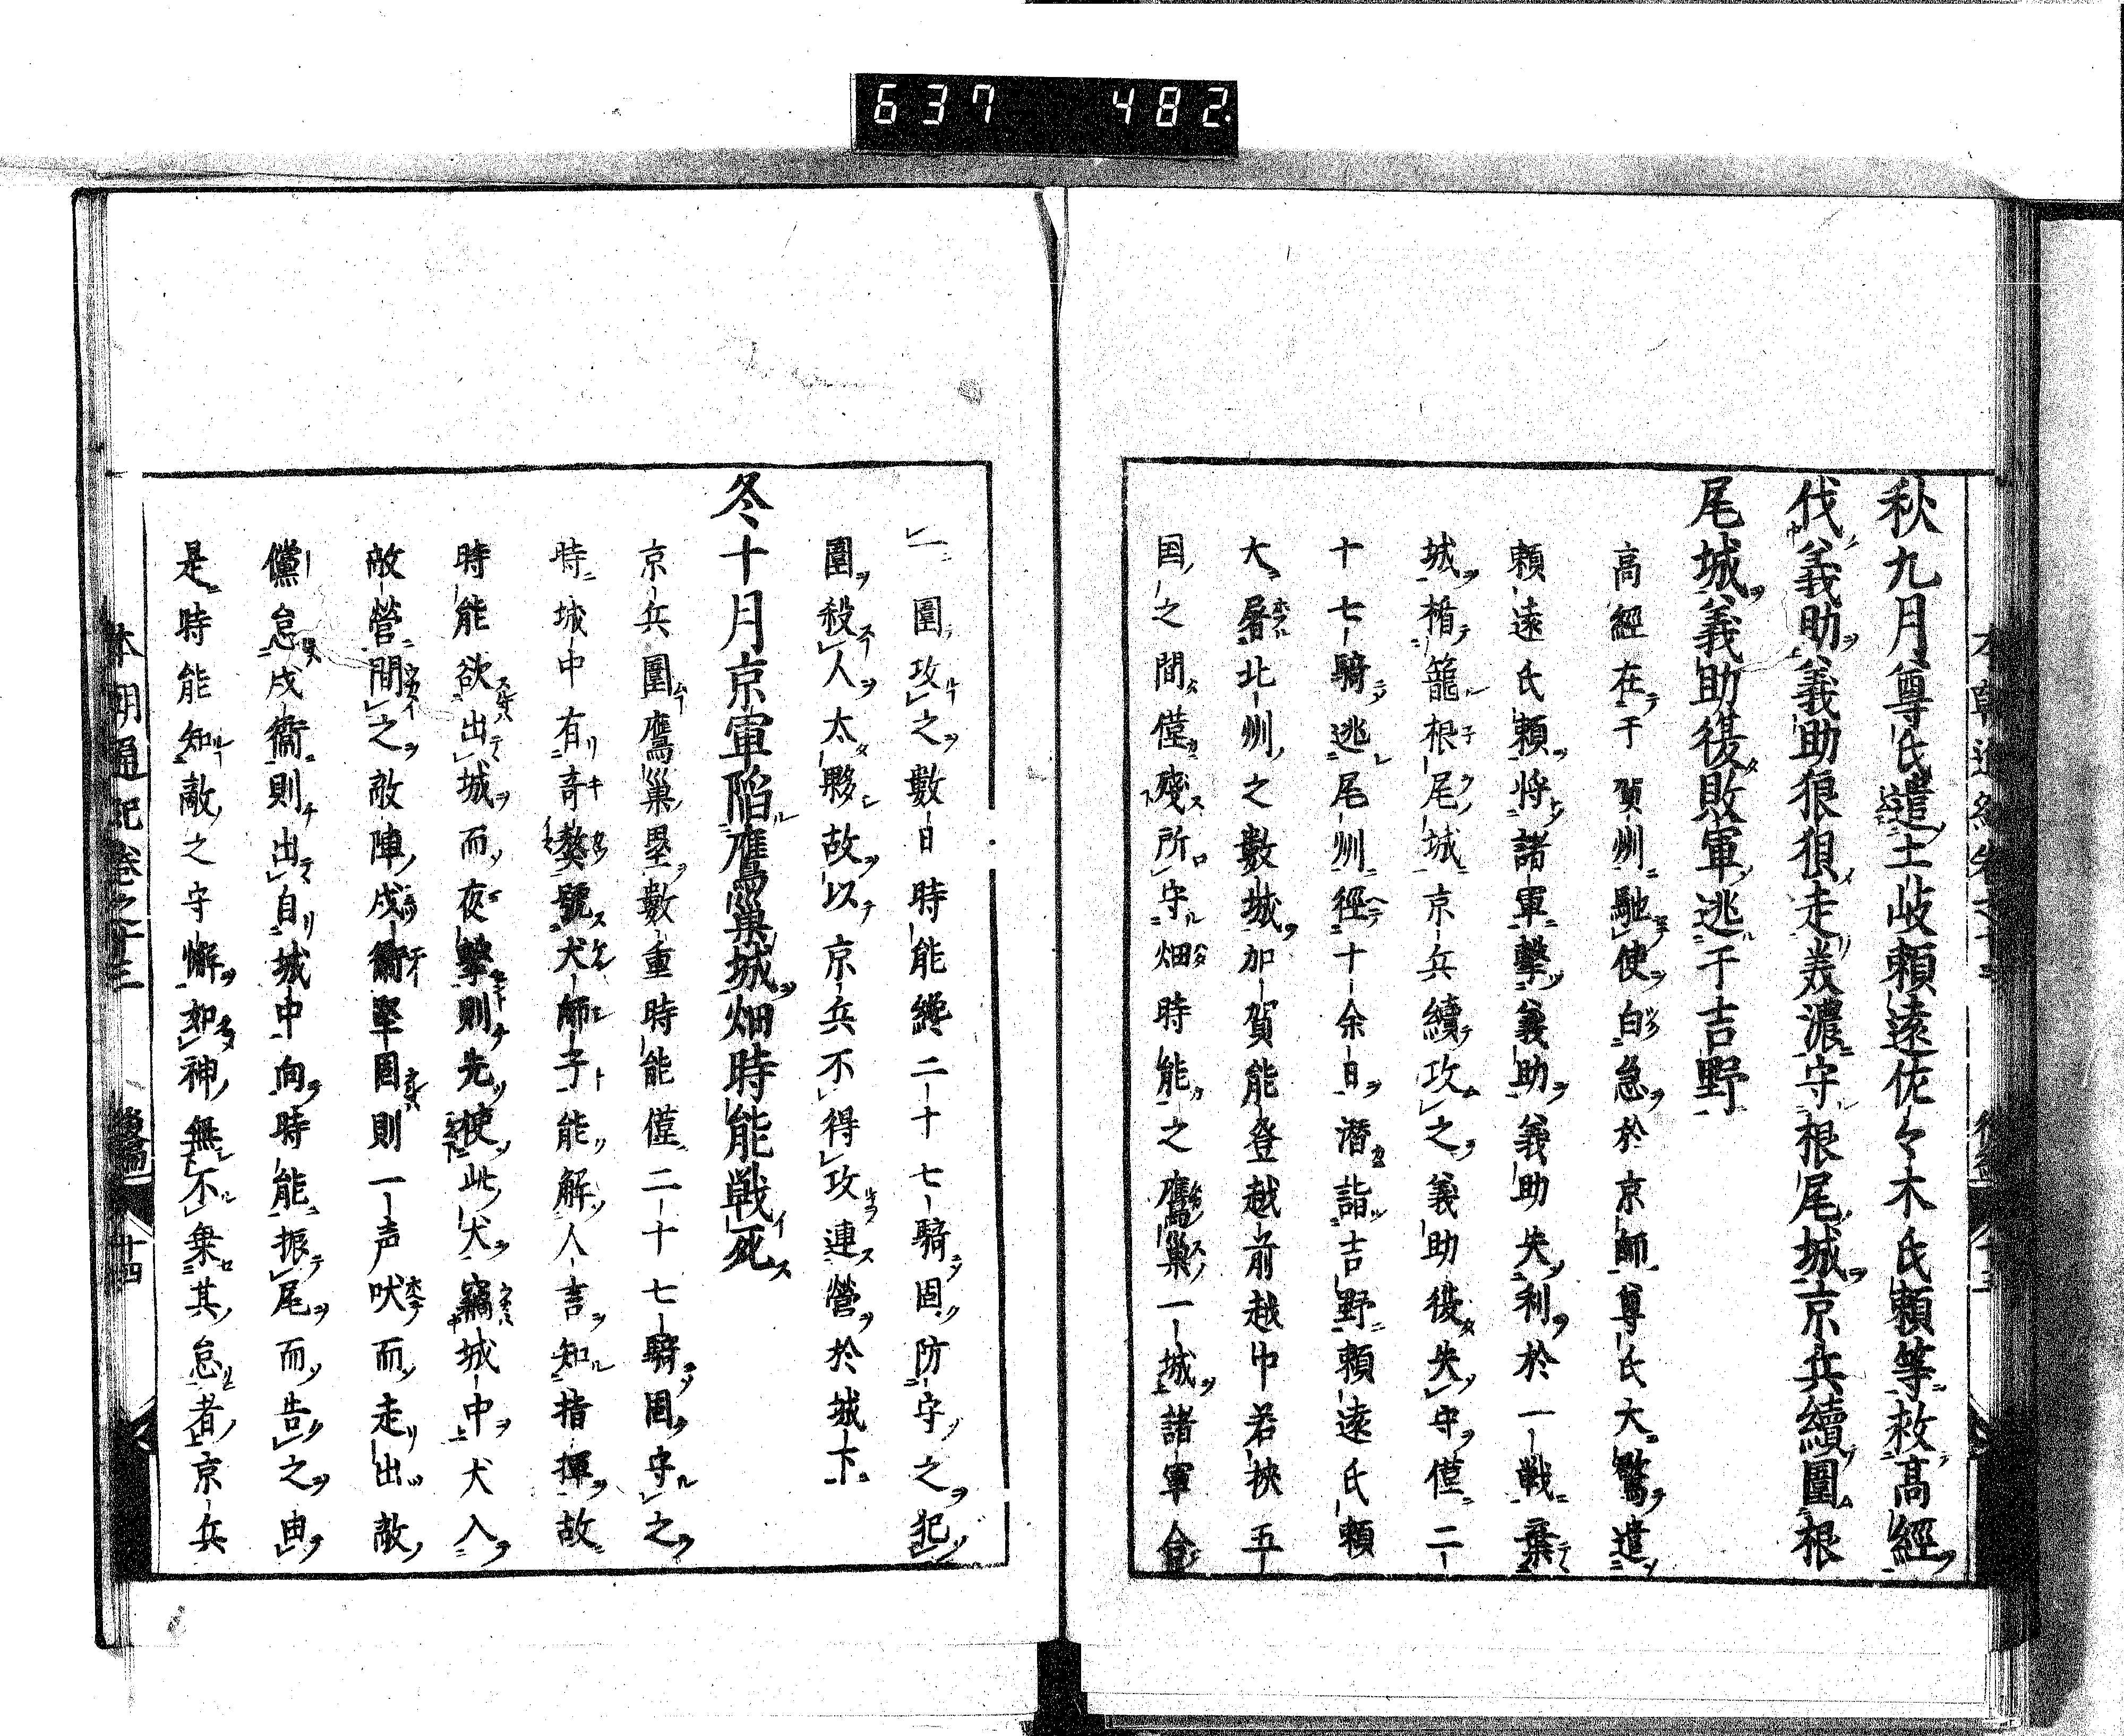 637 482
秋九月尊氏遣土岐頼遠佐々木氏頼等救高經
伐義助義助狼狽走美濃守根尾城京兵續圍根
尾城義助復敗軍逃于吉野
高經在于賀州馳使白急於京師尊氏大驚遣
頼遠氏頼将諸軍擊義助義助失利於一戦棄
城楯籠根尾城京兵續攻之義助復失守僅二
十七騎逃尾州經十余日潜詣吉野頼遠氏頼
大屠北州之數城加賀能登越前越中若狹五
国之間僅殘所守畑時能之鷹巢一城諸軍合
一圍攻之數日時能纔二十七騎固防守之犯
圍殺人太夥故以京兵不得攻連營於城下
冬十月京軍陷鷹巢城畑時能戦死
京兵圍鷹巢壘數重時能僅二十七騎固守之
時城中有奇獒號犬師子能解人言知指揮故
時能欲出城而夜擊則先使此犬窺城中犬入
敵營間之敵陣戍衞堅固則一声吠而走出敵
儻怠戍衞則出自城中向時能振尾而告之由
是時能知敵之守懈如神無不乗其怠者京兵
本朝通紀巻之十三 後編 十四